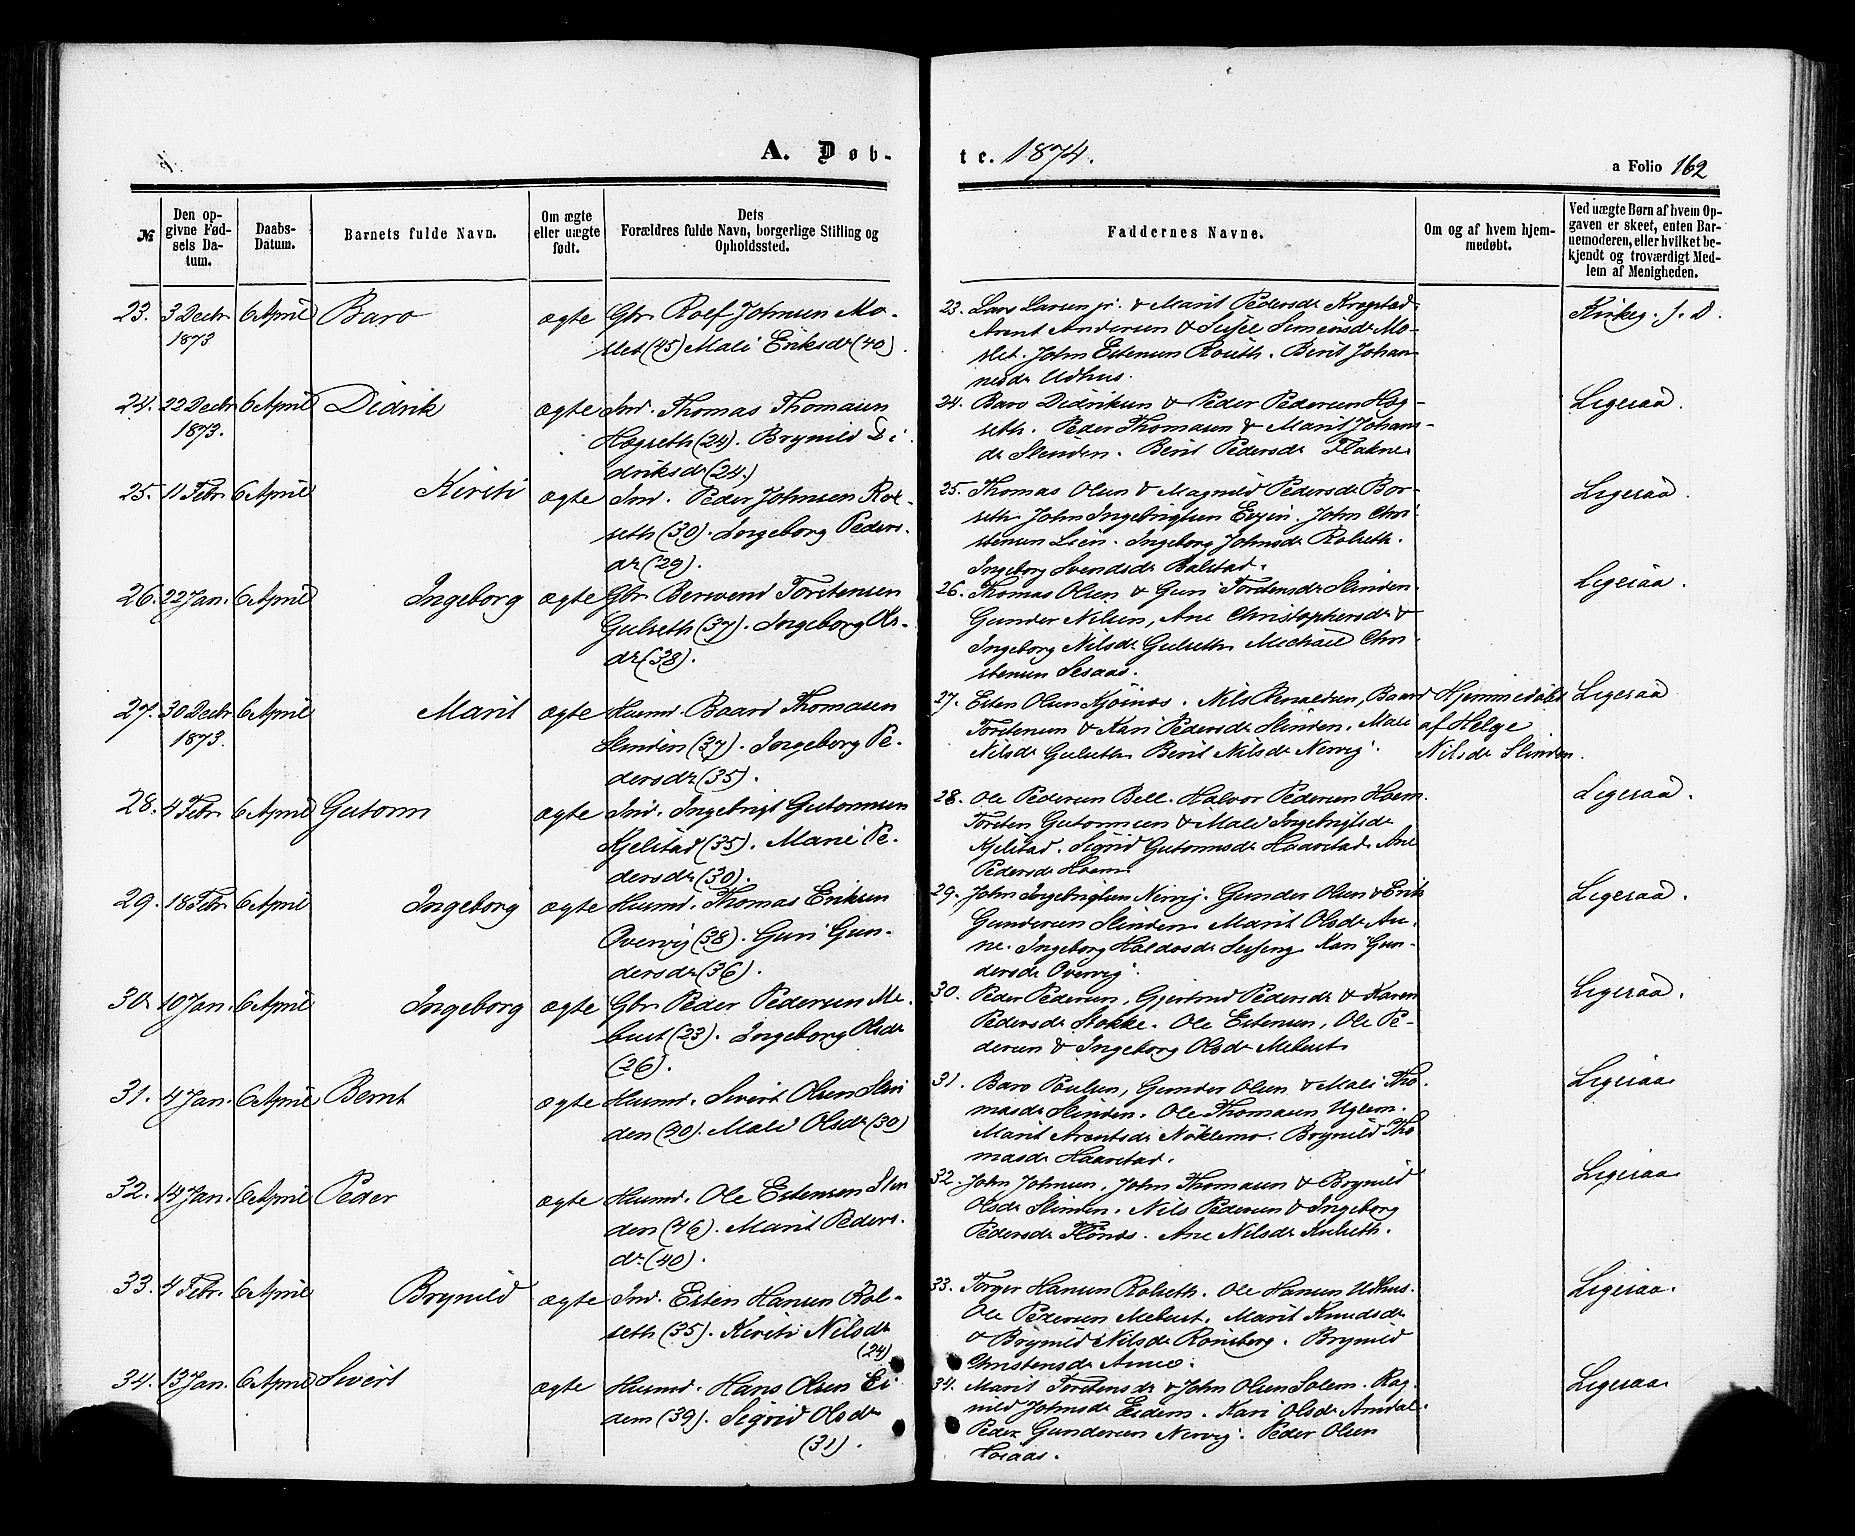 A. Døb-
te. 1874.
a Folio 162
№
Den op-
givne Fød-
sels Da-
tum.
Daabs-
Datum.
Barnets fulde Navn.
Om ægte
eller uægte
født.
Dets
Forældres fulde Navn, borgerlige Stilling og
Opholdssted.
Faddernes Navne.
Om og af hvem hjem-
medøbt.
Ved uægte Børn af hvem Op-
gaven er skeet, enten Bar-
nemoderen, eller hvilket be-
kjendt og troværdigt Med-
lem af Menigheden.
23. 3 Decbr 6 April Baro ægte Gbr Rolf Johnsen Mo-
1873 slet (45) Mali Eriksdr (40).
23. Lars Larsen jr. & Marit Pedersdr Krogstad.
Arent Andersen & Sisel Simensdr Mo-
slet. John Estensen Rolseth. Berit Johan
nesdr Udhus.
Kirkeg. s. D.
24. 22 Decbr 6 April Didrik ægte Ind. Thomas Thomasen
1873. Hogseth (24). Brynild Di
driksdr (24.)
24. Baro Didriksen & Peder Pedersen Hog-
seth. Peder Thomasen & Marit Johans-
dr Slinden. Berit Pedersdr Flakne
Ligesaa.
25. 11 Febr. 6 April Kirsti ægte Ind. Peder Johnsen Rol-
seth (30). Ingeborg Peders
dr (29).
25. Thomas Olsen & Magnild Pedersdr Bor-
seth. John Ingebrigtsen Evjen. John Chri
stensen Lien. Ingeborg Johnsdr Rolseth.
Ingeborg Svendsdr Balstad.
Ligesaa.
26. 22 Jan. 6 April Ingeborg ægte Gbr Berwend Torstensen
Gulseth (37). Ingeborg Ols-
dr (38).
26. Thomas Olsen & Guri Torstensdr Slinden.
Gunder Nilsen, Ane Christophersdr &
Ingeborg Nilsdr Gulseth. Michael Chri
stensen Sesaas.
Ligesaa.
27. 30 Decbr 6 April Marit ægte Husmd. Baard Thomasen
1873. Slinden (37). Ingeborg Pe-
dersdr (35).
27. Esten Olsen Kjösnes. Nils Arnaldsen, Baard
Torstensen & Kari Pedersdr Slinden. Mali
Nilsdr Gulseth. Berit Nilsdr Nervig.
Hjemmedøbt
af Helge
Nilsdr Slinden.
Ligesaa
28. 4 Febr. 6 April Gutorm ægte Ind. Ingebrigt Gutormsen
Kjelstad (35). Marie Pe-
dersdr (30).
28. Ole Pedersen Bell. Halvor Pedersen Hoem.
Torsten Gutormsen & Mali Ingebrigtsdr
Kjelstad. Sigrid Gutormsdr Haarstad. Ane
Pedersdr Hoem.
Ligesaa.
29. 18 Febr 6 April Ingeborg ægte Husmd. Thomas Eriksen
Overvig (38). Guri Gun-
dersdr (36).
29. John Ingebrigtsen Nervig. Gunder Olsen & Erik
Gundersen Slinden. Marit Olsdr Au-
ne. Ingeborg Haldosdr Kari Gun-
dersdr Overvig.
Ligesaa.
30. 10 Jan. 6 April Ingeborg ægte Gbr Peder Pedersen Me-
bust (23). Ingeborg Olsdr
(26).
30. Peder Pedersen, Gjertrud Pedersdr & Karen
Pedersdr Stokke. Ole Estensen, Ole Pe-
dersen & Ingeborg Olsdr Mebust
Ligesaa.
31. 4 Jan. 6 April Bernt ægte Husmd. Sivert Olsen Slin
den (40). Mali Olsdr (30)
31. Baro Paulsen, Gunder Olsen & Mali Tho
masdr Slinden. Ole Thomasen Uglem.
Marit Arentsdr Nöklemo. Brynild Tho
masdr Haarstad.
Ligesaa
32. 14 Jan. 6 April Peder ægte Husmd. Ole Estensen Slin
den (46). Marit Peders.
dr (40).
32. John Johnsen, John Thomasen & Brynild
Olsdr Slinden. Nils Pedersen & Ingeborg
Pedersdr Flönes. Ane Nilsdr Kulseth.
Ligesaa
33. 4 Febr. 6 April Brynild ægte Ind. Esten Hansen Rol-
seth (35). Kirsti Nilsdr
(24)
33. Torger Hansen Rolseth. Ole Hansen Udhus.
Ole Pedersen Mebust. Marit Knudsdr
& Brynild Nilsdr Rönsberg. Brynild
Christensdr Amdal.
Ligesaa.
34. 13 Jan. 6 April Sivert ægte Husmd. Hans Olsen Ei
dem (39). Sigrid Olsdr
(31).
34. Marit Torstensdr & John Olsen Solem. Rag-
nild Johnsdr Eidem. Kari Olsdr Amdal.
Peder Gundersen Nervig. Peder Olsen
Hosaas.
Ligesaa